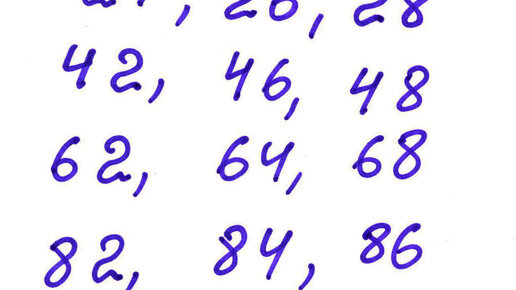 24, 26, 28
42, 46, 48
62, 64, 68
82, 84, 86